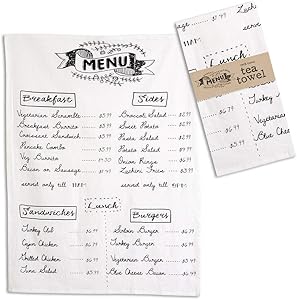 MENU
Breakfast
Vegetarian Scramble $5.99
Breakfast Burrito $5.99
Croissant Sandwich $5.99
Pancake Combo $5.99
Veg. Burrito
Bacon or Sausage
served only till 11AM
Sides
Broccoli Salad $5.99
Sweet Potato $5.99
Pasta Salad $5.99
Potato Salad $5.99
Onion Rings
Zuchini Fries $5.99
served only till 11AM
Lunch
Sandwiches
Turkey Club $6.99
Cajun Chicken $6.99
Grilled Chicken $6.99
Tuna Salad $5.99
Burgers
Sirloin Burger $6.99
Turkey Burger $6.99
Vegetarian Burger $6.99
Blue Cheese Bacon $7.99
$5.99
Zuch
serve
Lunch
MENU
tea
towel
Turkey
$6.79
Vegeta
$6.79
Blue Chee
$5.99